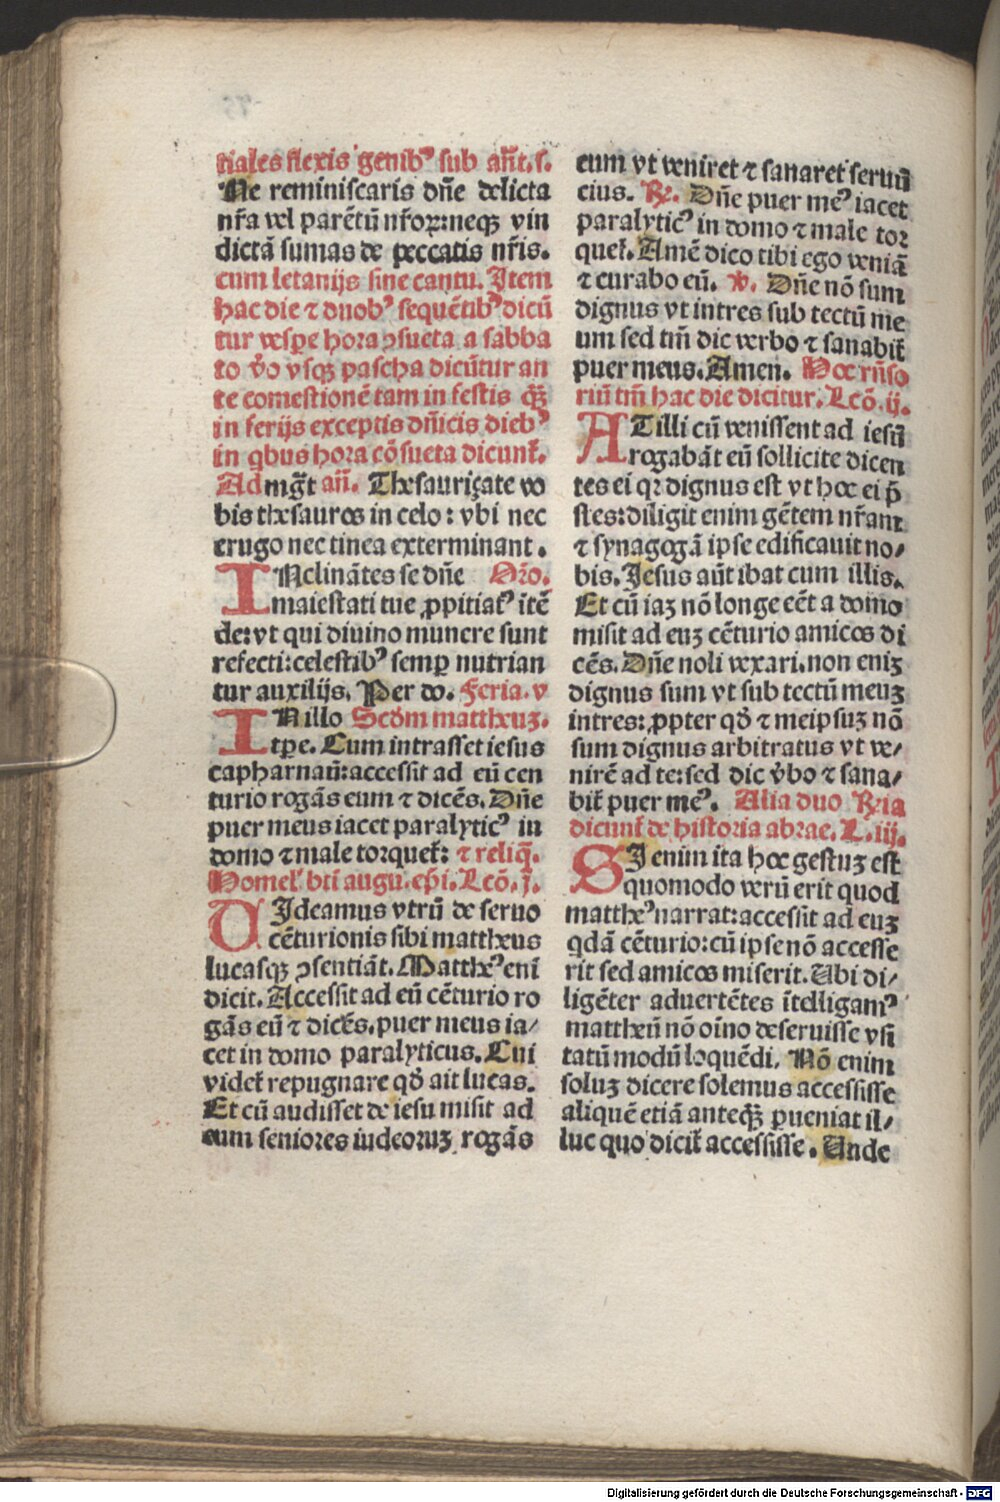 tiales flexis genibꝰ sub añt. s.
Ne reminiscaris dñe delicta
nr̃a vel parẽtũ nr̃oꝝ: neqꝫ vin
dictã sumas de peccatis nr̃is.
cum letanijs sine cantu. Item
hac die ⁊ duobꝰ sequẽtibꝰ dicũ
tur vespe hora ꝯsueta a sabba
to v̊o vsqꝫ pascha dicũtur an
te comestionẽ tam in festis qꝫ̃
in ferijs exceptis dñicis diebꝰ
in qbus hora cõsueta dicunt̃.
Ad mg̃t añ. Thesauriçate vo
bis thesauros in celo: vbi nec
erugo nec tinea exterminant.
INclinãtes se dñe Oro.
maiestati tue ꝓpitiatꝰ itẽ
de: vt qui diuino munere sunt
refecti: celestibꝰ semꝑ nutrian
tur auxilijs. Per do. Feria. v
INillo Scdm mattheuʒ.
tꝑe. Cum intrasset iesus
capharnaũ: accessit ad eũ cen
turio rogãs eum ⁊ dicẽs. Dñe
puer meus iacet paralyticꝰ in
domo ⁊ male torquet̃: ⁊ reliq̃.
Homel̃ bti augu. ep̃i. Leõ. j.
UIdeamus vtrũ de seruo
cẽturionis sibi mattheus
lucasqꝫ ꝯsentiãt. Matthꝰ enĩ
dicit. Accessit ad eũ cẽturio ro
gãs eũ ⁊ dicẽs. puer meus ia/
cet in domo paralyticus. Cui
videt̃ repugnare qď ait lucas.
Et cũ audisset de iesu misit ad
eum seniores iudeoruʒ rogãs
eum vt veniret ⁊ sanaret seruũ
eius. ℟. Dñe puer meꝰ iacet
paralyticꝰ in domo ⁊ male tor
quet̃. Amẽ dico tibi ego veniã
⁊ curabo eũ. ℣. Dñe nõ sum
dignus vt intres sub tectũ me
um sed tm̃ dic verbo ⁊ sanabit̃
puer meus. Amen. Hoc rñso
riũ tm̃ hac die dicitur. Leõ. ij.
ATilli cũ venissent ad iesũ
rogabãt eũ sollicite dicen
tes ei qꝛ dignus est vt hoc ei p̃
stes: diligit enim gẽtem nr̃am
⁊ synagogã ipse edificauit no/
bis. Iesus aũt ibat cum illis.
Et cũ iaʒ nõ longe eẽt a domo
misit ad euʒ cẽturio amicos di
cẽs. Dñe noli vexari. non eniʒ
dignus sum vt sub tectũ meuʒ
intres: ꝓpter qď ⁊ meipsuʒ nõ
sum dignus arbitratus vt ve/
nirẽ ad te: sed dic v̊bo ⁊ sana/
bit̃ puer meꝰ. Alia duo Rr̃ia
dicunt̃ de historia abrae. L. iij.
SI enim ita hoc gestuʒ est
quomodo verũ erit quod
matthꝰ narrat: accessit ad euʒ
qdã cẽturio: cũ ipse nõ accesse
rit sed amicos miserit. Ubi di/
ligẽter aduertẽtes ĩtelligamꝰ
mattheũ nõ oĩno deseruisse vsi
tatũ modũ loquẽdi. Nõ enim
soluʒ dicere solemus accessisse
aliquẽ etiã anteqꝫ̃ ꝑueniat il/
luc quo dicit̃ accessisse. Unde
Digitalisierung gefördert durch die Deutsche Forschungsgemeinschaft - DFG